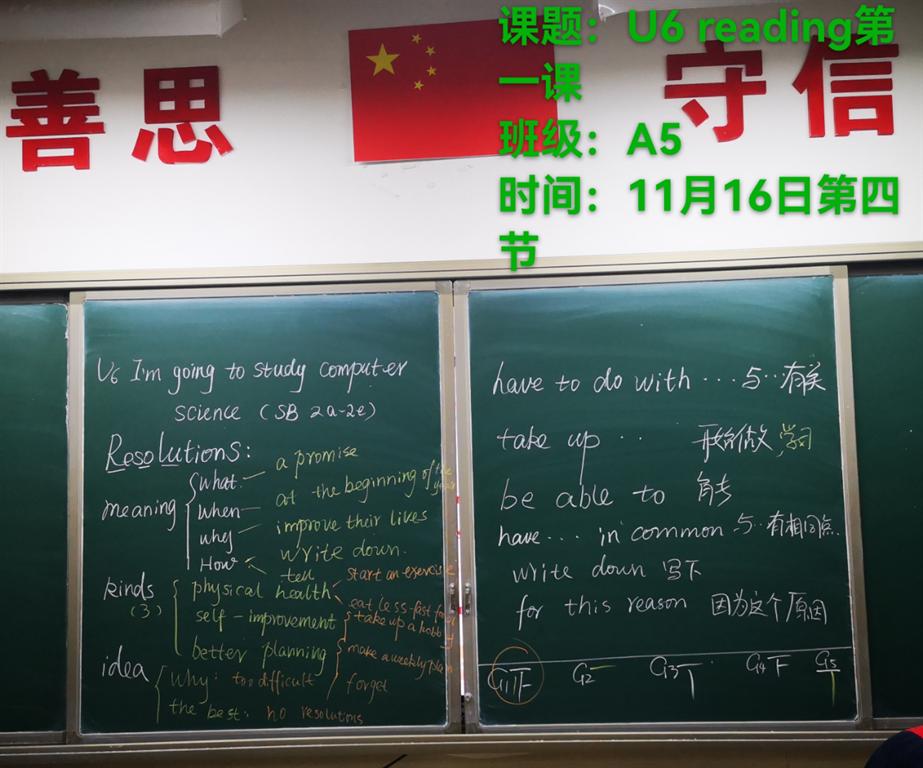 善思
守信
课题：U6 reading第
一课
班级：A5
时间：11月16日第四
节
U6 I'm going to study computer
science (SB 2a-2e)
Resolutions:
meaning
what. a promise
when at the beginning of the year
why improve their lives
How write down.
tell
kinds
(3)
physical health start an exercise
eat less fast food
self-improvement take up a hobby
better planning make a weekly plan
idea
why: too difficult forget
the best: no resolutions
have to do with ··· 与··有关
take up ·· 开始做,学习
be able to 能够
have ··· in common 与··有相同点.
write down 写下
for this reason 因为这个原因
G1正 G2一 G3 G4 G5